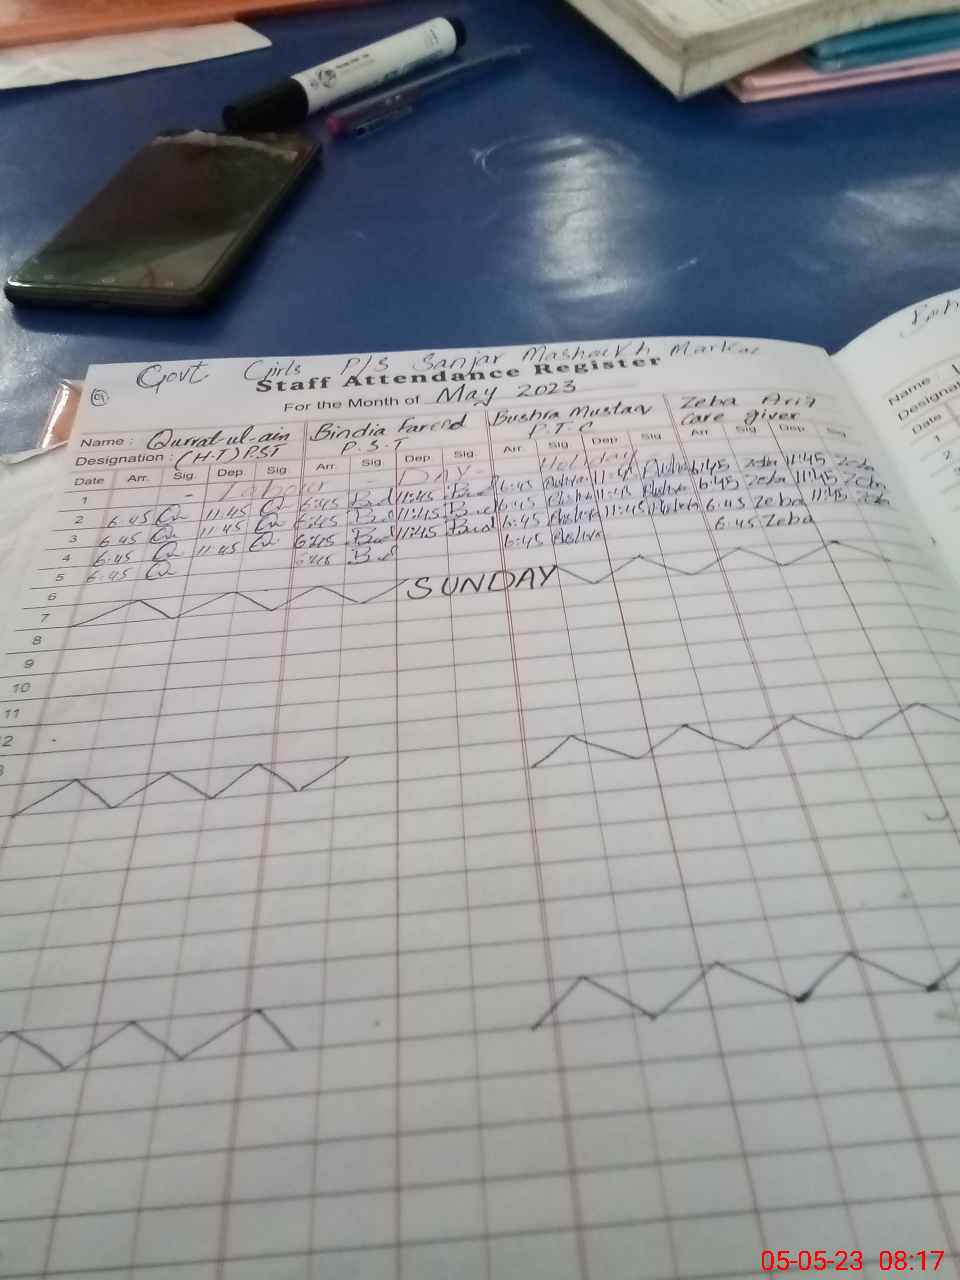 Govt Girls P/S Sanjar Mashaikh Markaz
Staff Attendance Register
For the Month of May 2023
Name : Qurrat-ul-ain Bindia Fareed Bushra Mustaq Zeba Arif
Designation : (H-T) P.S.T P.S.T P.T.C Care giver
Date Arr. Sig. Dep. Sig Arr. Sig Dep Sig. Arr. Sig Dep Sig Arr. Sig Dep Sig
1 - Labour - Day - Holiday
2 6:45 11:45 6:45 11:45 6:45 11:45 6:45 Zeba 11:45 Zeba
3 6:45 11:45 6:45 11:45 6:45 11:45 6:45 Zeba 11:45 Zeba
4 6:45 11:45 6:45 11:45 6:45 11:45 6:45 Zeba 11:45 Zeba
5 6:45 6:45 6:45 6:45 Zeba
6
7 SUNDAY
8
9
10
11
Name :
Date
1
2
05-05-23 08:17